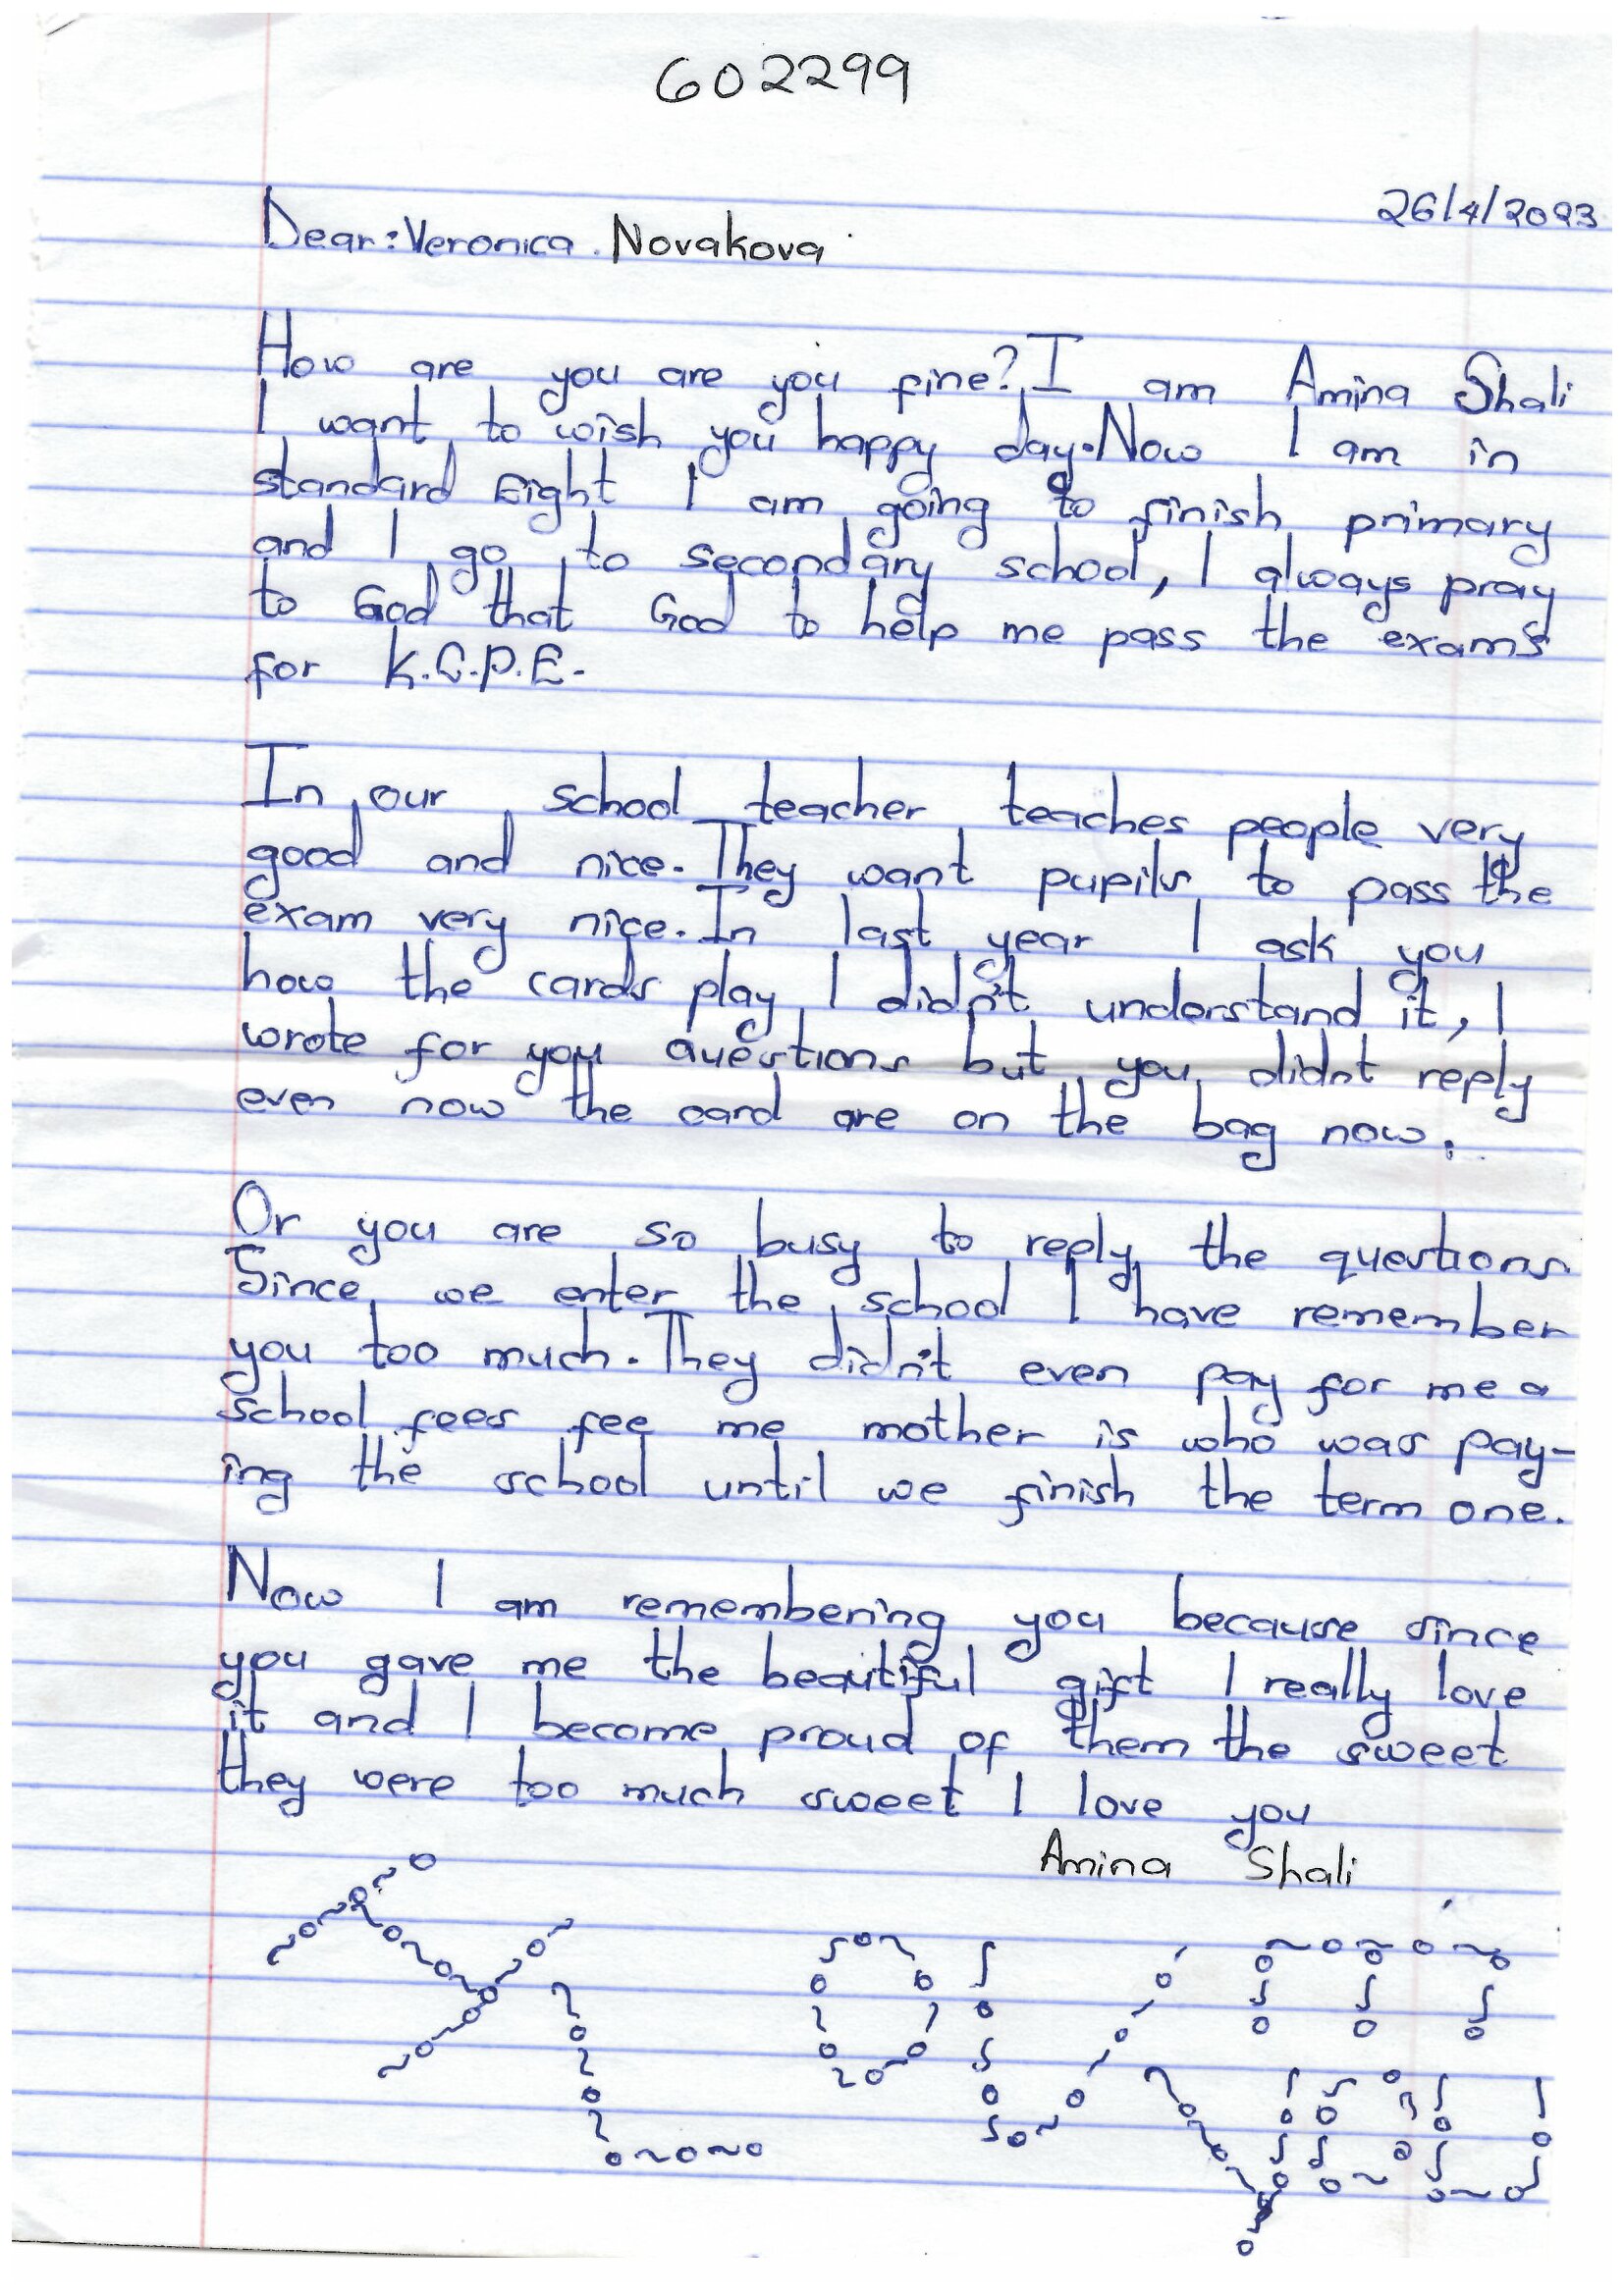 602299
26/4/2023
Dear:Veronica. Novakova
How are you are you fine? I am Amina Shali
I want to wish you happy day. Now I am in
standard Eight I am going to finish primary
and I go to secondary school, I always pray
to God that God to help me pass the exams
for K.C.P.E.
In our school teacher teaches people very
good and nice. They want pupils to pass the
exam very nice. In last year I ask you
how the cards play I didn't understand it, I
wrote for you questions but you didnt reply
even now the card are on the bag now.
Or you are so busy to reply the questions
Since we enter the school I have remember
you too much. They didn't even pay for me a
school fees fee me mother is who was pay-
ing the school until we finish the term one.
Now I am remembering you because since
you gave me the beautiful gift I really love
it and I become proud of them the sweet
they were too much sweet I love you
Amina Shali
I LOVE
YOU